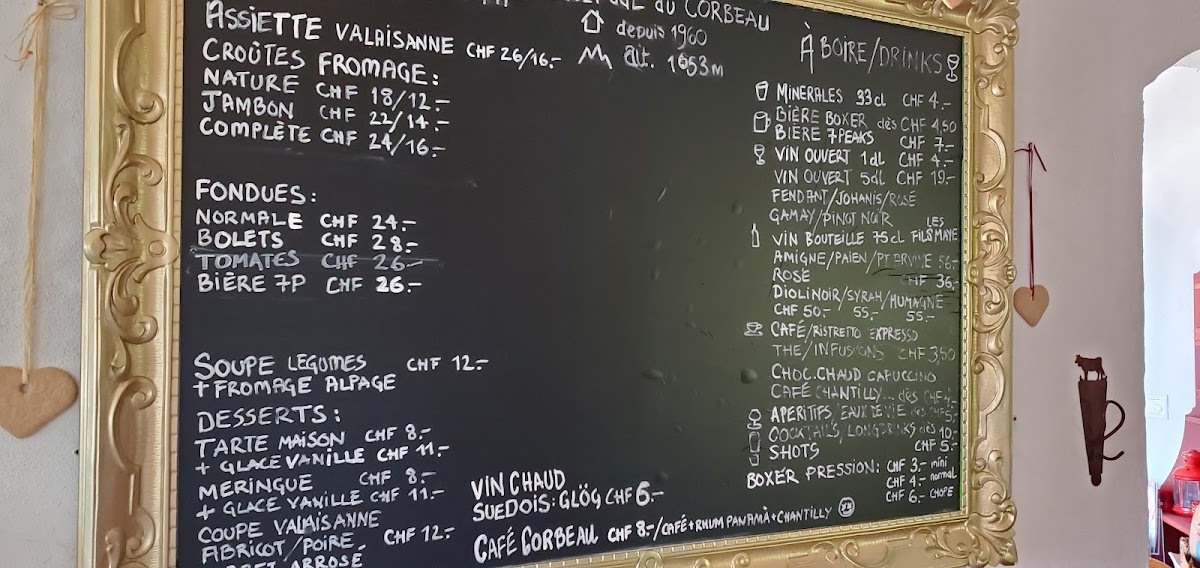 DU CORBEAU
depuis 1960
alt. 1653m
ASSIETTE VALAISANNE CHF 26/16.-
CROÛTES FROMAGE:
NATURE CHF 18/12.-
JAMBON CHF 22/14.-
COMPLÈTE CHF 24/16.-
FONDUES:
NORMALE CHF 24.-
BOLETS CHF 28.-
TOMATES CHF 26.-
BIÈRE 7P CHF 26.-
SOUPE LEGUMES CHF 12.-
+ FROMAGE ALPAGE
DESSERTS:
TARTE MAISON CHF 8.-
+ GLACE VANILLE CHF 11.-
MERINGUE CHF 8.-
+ GLACE VANILLE CHF 11.-
COUPE VALAISANNE
ABRICOT/POIRE CHF 12.-
ARROSÉ
VIN CHAUD
SUEDOIS: GLÖG CHF 6.-
CAFÉ CORBEAU CHF 8.-/CAFÉ+RHUM PANAMÀ+CHANTILLY
À BOIRE/DRINKS
MINERALES 33cl CHF 4.-
BIÈRE BOXER dès CHF 4,50
BIÈRE 7PEAKS CHF 7.-
VIN OUVERT 1dl CHF 4.-
VIN OUVERT 5dl CHF 19.-
FENDANT/JOHANIS/ROSÉ
GAMAY/PINOT NOIR
VIN BOUTEILLE 75cl LES FILS MAYE
AMIGNE/PAIEN/PT ARVINE 56.-
ROSÉ CHF 36.-
DIOLINOIR/SYRAH/HUMAGNE
CHF 50.- 55.- 55.-
CAFÉ/RISTRETTO EXPRESSO
THE/INFUSIONS CHF 3,50
CHOC.CHAUD CAPUCCINO
CAFÉ CHANTILLY... dès CHF 4.-
APERITIFS/EAUX DE VIE dès CHF 5.-
COCKTAILS/LONGDRINKS dès 10.-
SHOTS CHF 5.-
BOXER PRESSION: CHF 3.- mini
CHF 4.- normal
CHF 6.- CHOPE